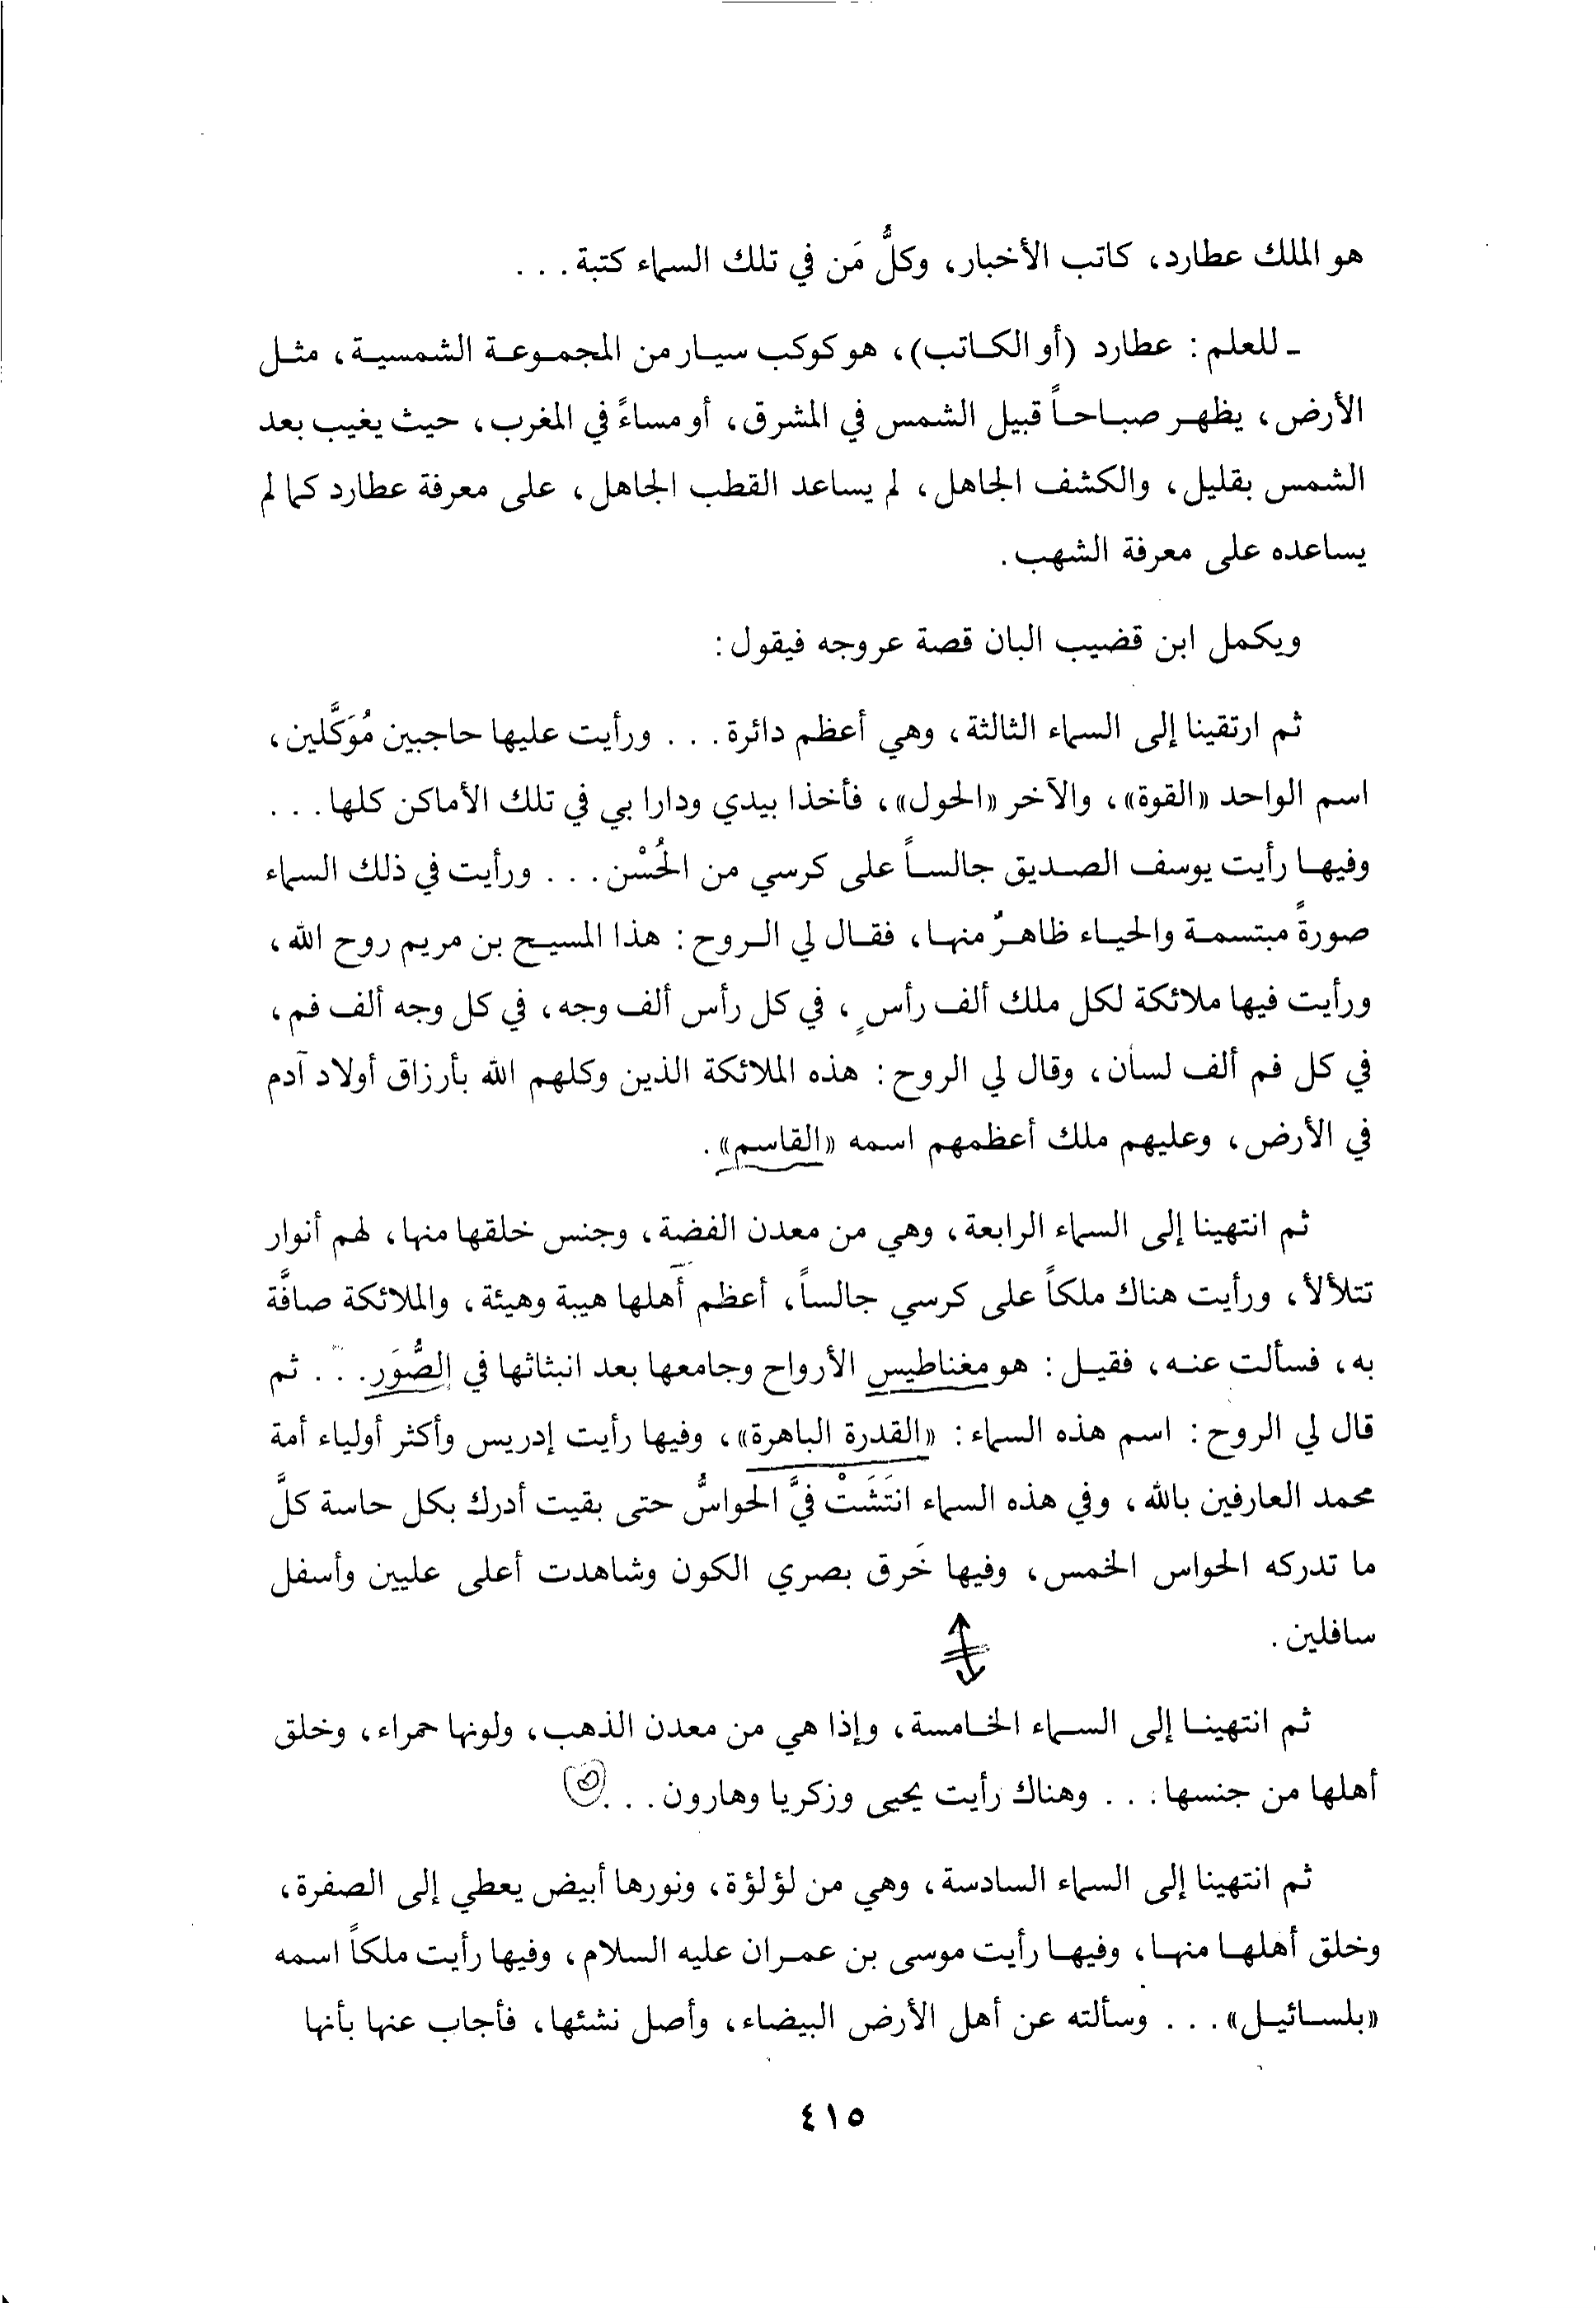 هو الملك عطارد، كاتب الأخبار، وكلُّ مَن في تلك السماء كتبة. . .
ـ للعلم: عطارد (أو الكاتب)، هو كوكب سيار من المجموعة الشمسية، مثل
الأرض، يظهر صباحاً قبيل الشمس في المشرق، أو مساءً في المغرب، حيث يغيب بعد
الشمس بقليل، والكشف الجاهل، لم يساعد القطب الجاهل، على معرفة عطارد كما لم
يساعده على معرفة الشهب.
ويكمل ابن قضيب البان قصة عروجه فيقول:
ثم ارتقينا إلى السماء الثالثة، وهي أعظم دائرة. . . ورأيت عليها حاجبين مُوَكَّلين،
اسم الواحد «القوة»، والآخر «الحول»، فأخذا بيدي ودارا بي في تلك الأماكن كلها. . .
وفيها رأيت يوسف الصديق جالساً على كرسي من الحُسْن. . . ورأيت في ذلك السماء
صورةً مبتسمة والحياء ظاهرٌ منها، فقال لي الروح: هذا المسيح بن مريم روح الله،
ورأيت فيها ملائكة لكل ملك ألف رأسٍ، في كل رأس ألف وجه، في كل وجه ألف فم،
في كل فم ألف لسان، وقال لي الروح: هذه الملائكة الذين وكلهم الله بأرزاق أولاد آدم
في الأرض، وعليهم ملك أعظمهم اسمه «القاسم».
ثم انتهينا إلى السماء الرابعة، وهي من معدن الفضة، وجنس خلقها منها، لهم أنوار
تتلألأ، ورأيت هناك ملكاً على كرسي جالساً، أعظم أهلها هيبة وهيئة، والملائكة صافَّة
به، فسألت عنه، فقيل: هو مغناطيس الأرواح وجامعها بعد انبثاثها في الصُّوَر. . . ثم
قال لي الروح: اسم هذه السماء: «القدرة الباهرة»، وفيها رأيت إدريس وأكثر أولياء أمة
محمد العارفين بالله، وفي هذه السماء انتَشَتْ فيَّ الحواسُّ حتى بقيت أدرك بكل حاسة كلَّ
ما تدركه الحواس الخمس، وفيها خَرق بصري الكون وشاهدت أعلى عليين وأسفل
سافلين.
ثم انتهينا إلى السماء الخامسة، وإذا هي من معدن الذهب، ولونها حمراء، وخلق
أهلها من جنسها. . . وهناك رأيت يحيى وزكريا وهارون. . .
ثم انتهينا إلى السماء السادسة، وهي من لؤلؤة، ونورها أبيض يعطي إلى الصفرة،
وخلق أهلها منها، وفيها رأيت موسى بن عمران عليه السلام، وفيها رأيت ملكاً اسمه
«بلسائيل». . . وسألته عن أهل الأرض البيضاء، وأصل نشئها، فأجاب عنها بأنها
٤١٥